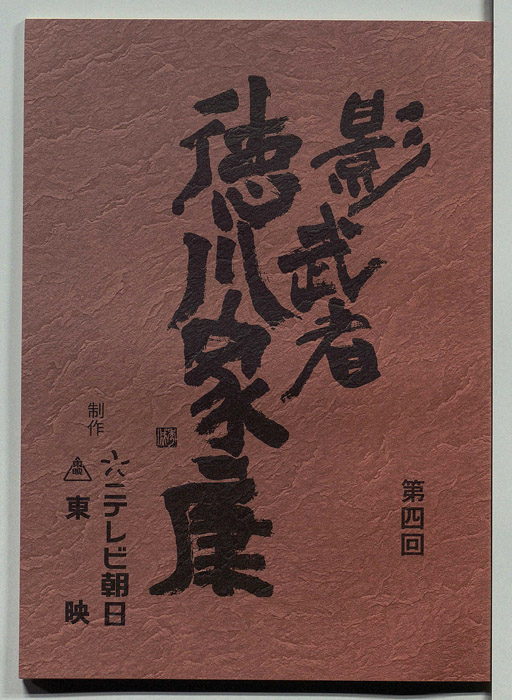 影武者
徳川家康
第四回
制作
テレビ朝日
東映